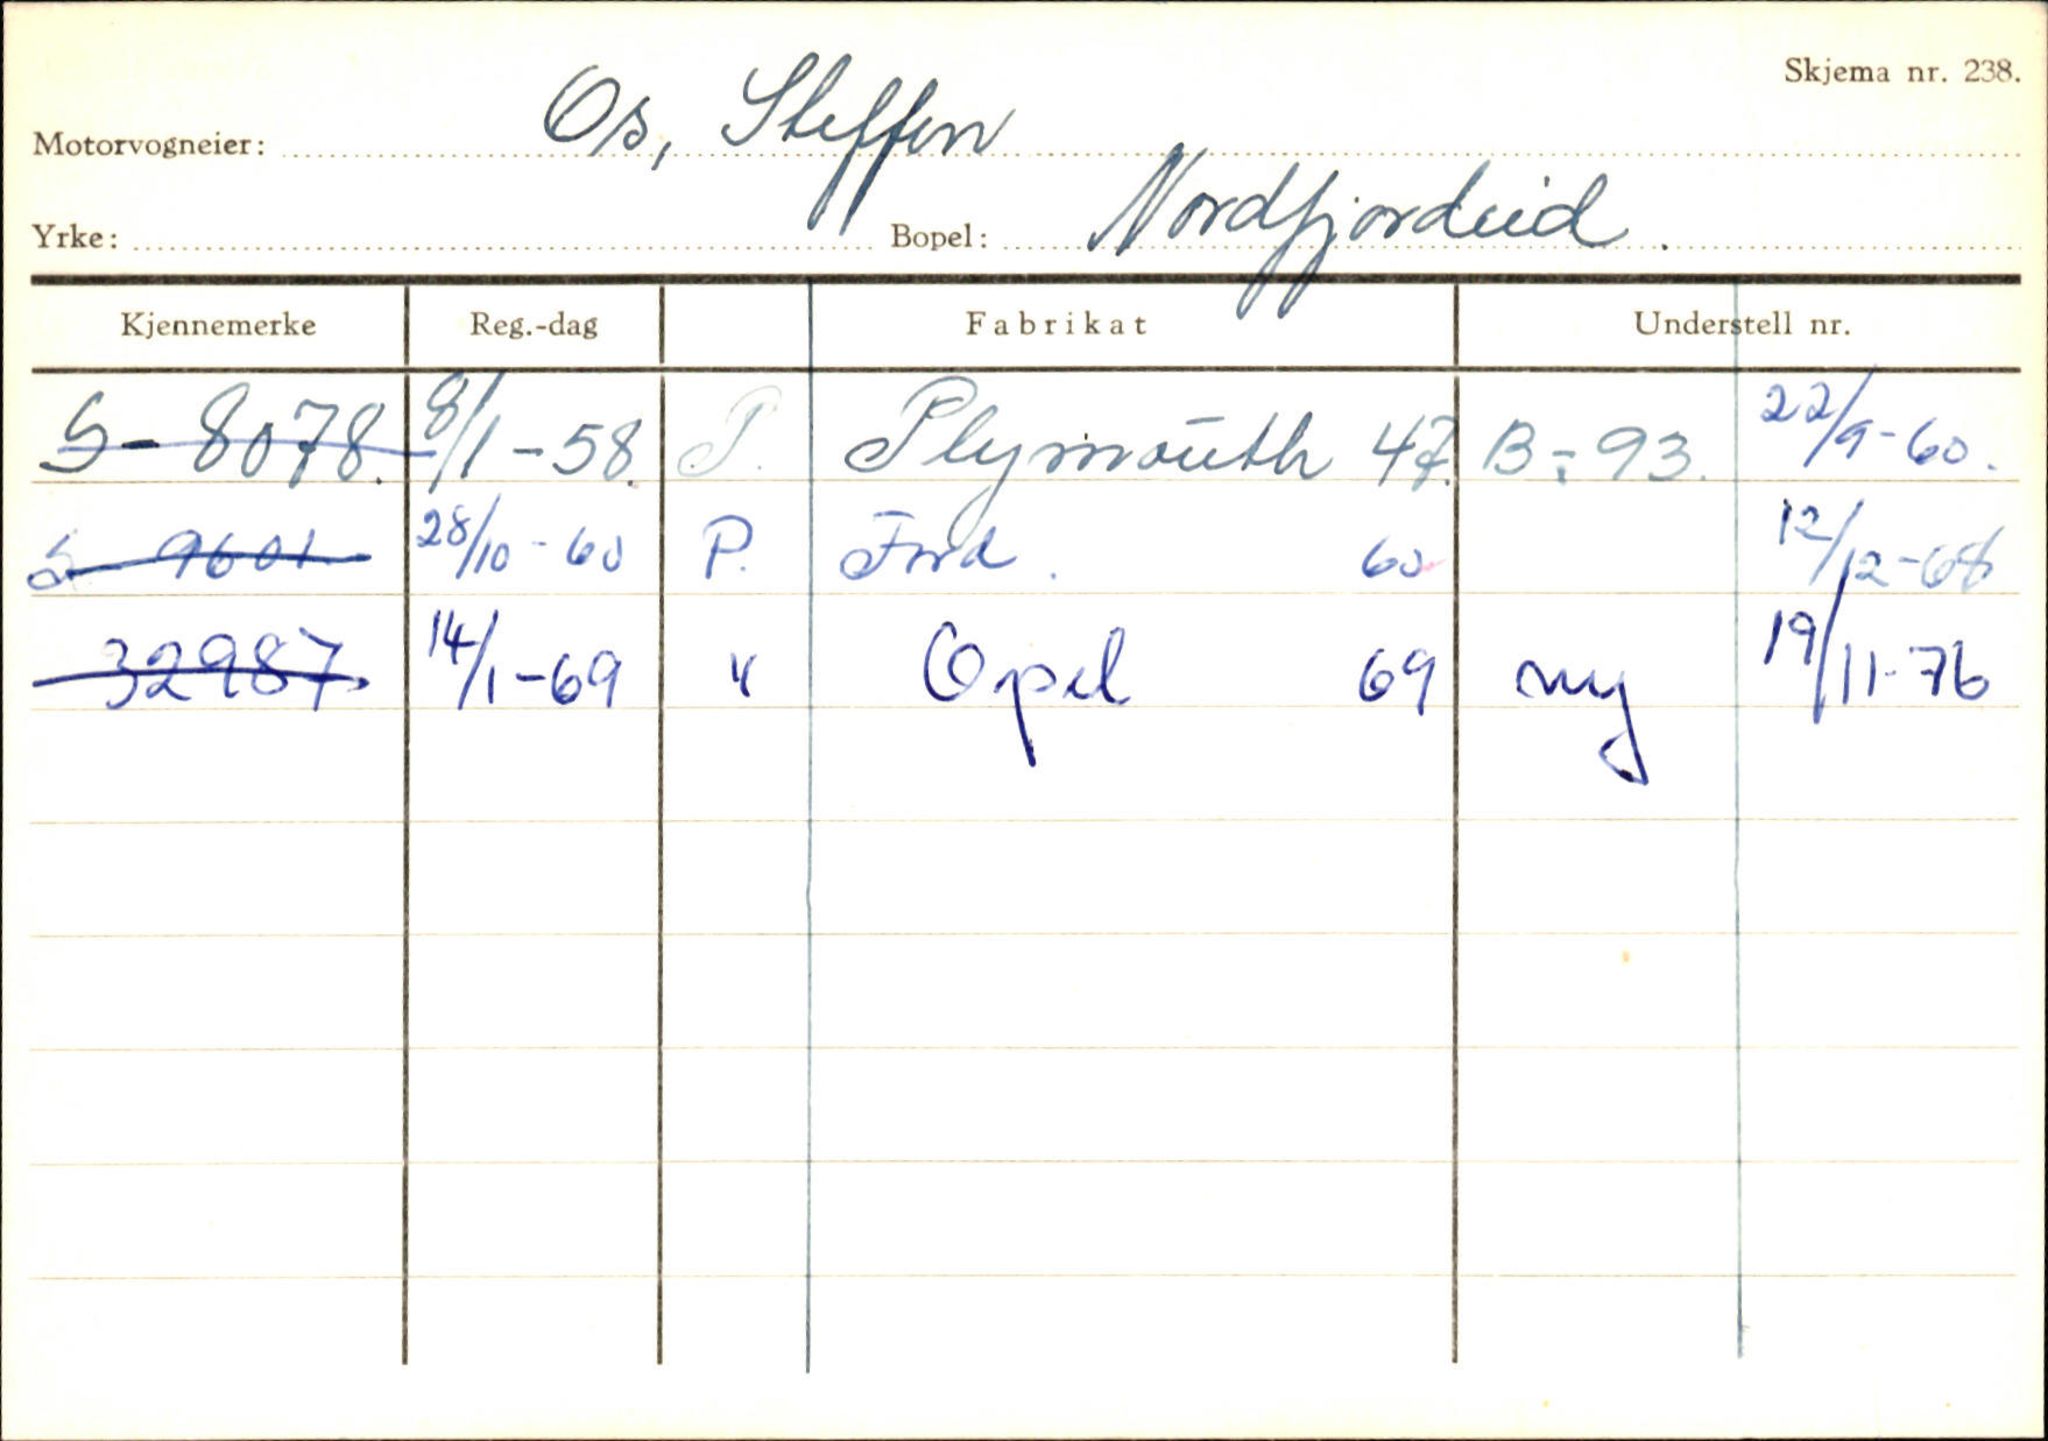 Skjema nr. 238.
Motorvogneier: Os, Steffen
Yrke: Bopel: Nordfjordeid.
Kjennemerke Reg.-dag Fabrikat Understell nr.
S-8078. 8/1-58. P. Plymouth 47. B-93. 22/9-60.
S 9601 28/10-60 P. Ford. 60 12/12-68
32987 14/1-69 " Opel 69 ny 19/11-76